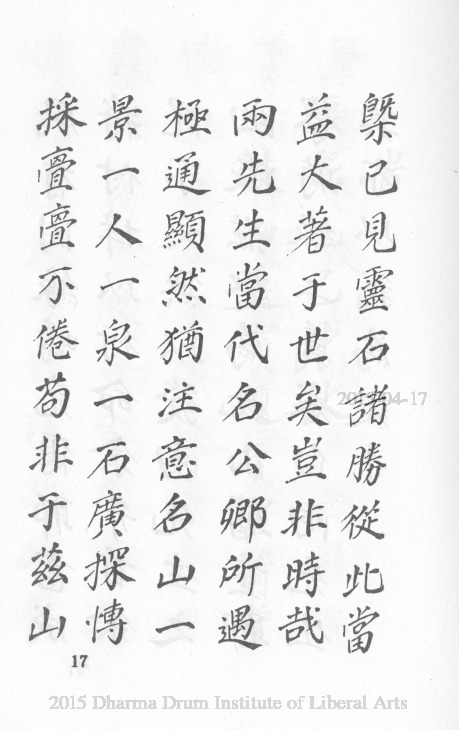 槩已見靈石諸勝從此當
益大著于世矣豈非時哉
兩先生當代名公卿所遇
極通顯然猶注意名山一
景一人一泉一石廣探博
採亹亹不倦苟非于茲山
17
2015-04-17
2015 Dharma Drum Institute of Liberal Arts